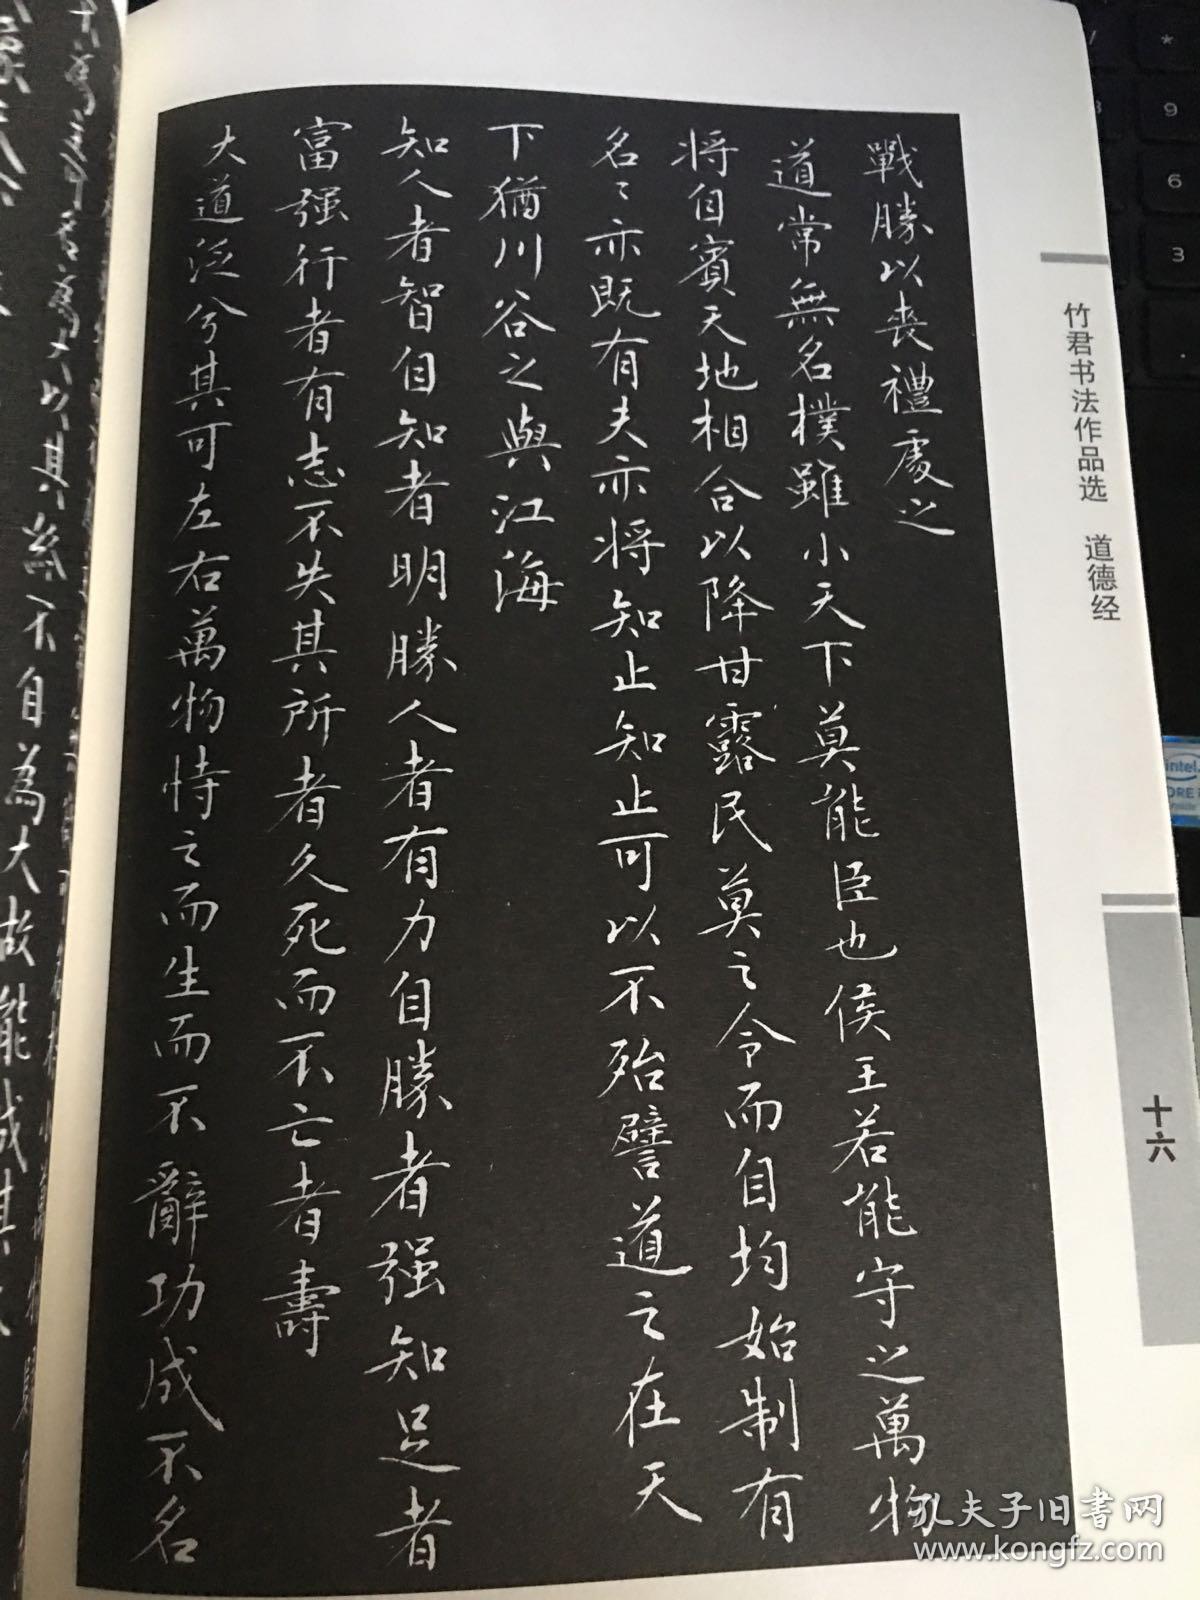 戰勝以喪禮處之
道常無名樸雖小天下莫能臣也侯王若能守之萬物
將自賓天地相合以降甘露民莫之令而自均始制有
名〻亦既有夫亦将知止知止可以不殆譬道之在天
下猶川谷之與江海
知人者智自知者明勝人者有力自勝者强知足者
富强行者有志不失其所者久死而不亡者壽
大道泛兮其可左右萬物恃之而生而不辭功成不名
竹君书法作品选 道德经
十六
不自為大故能成其
孔夫子旧書网
www.kongfz.com
intel